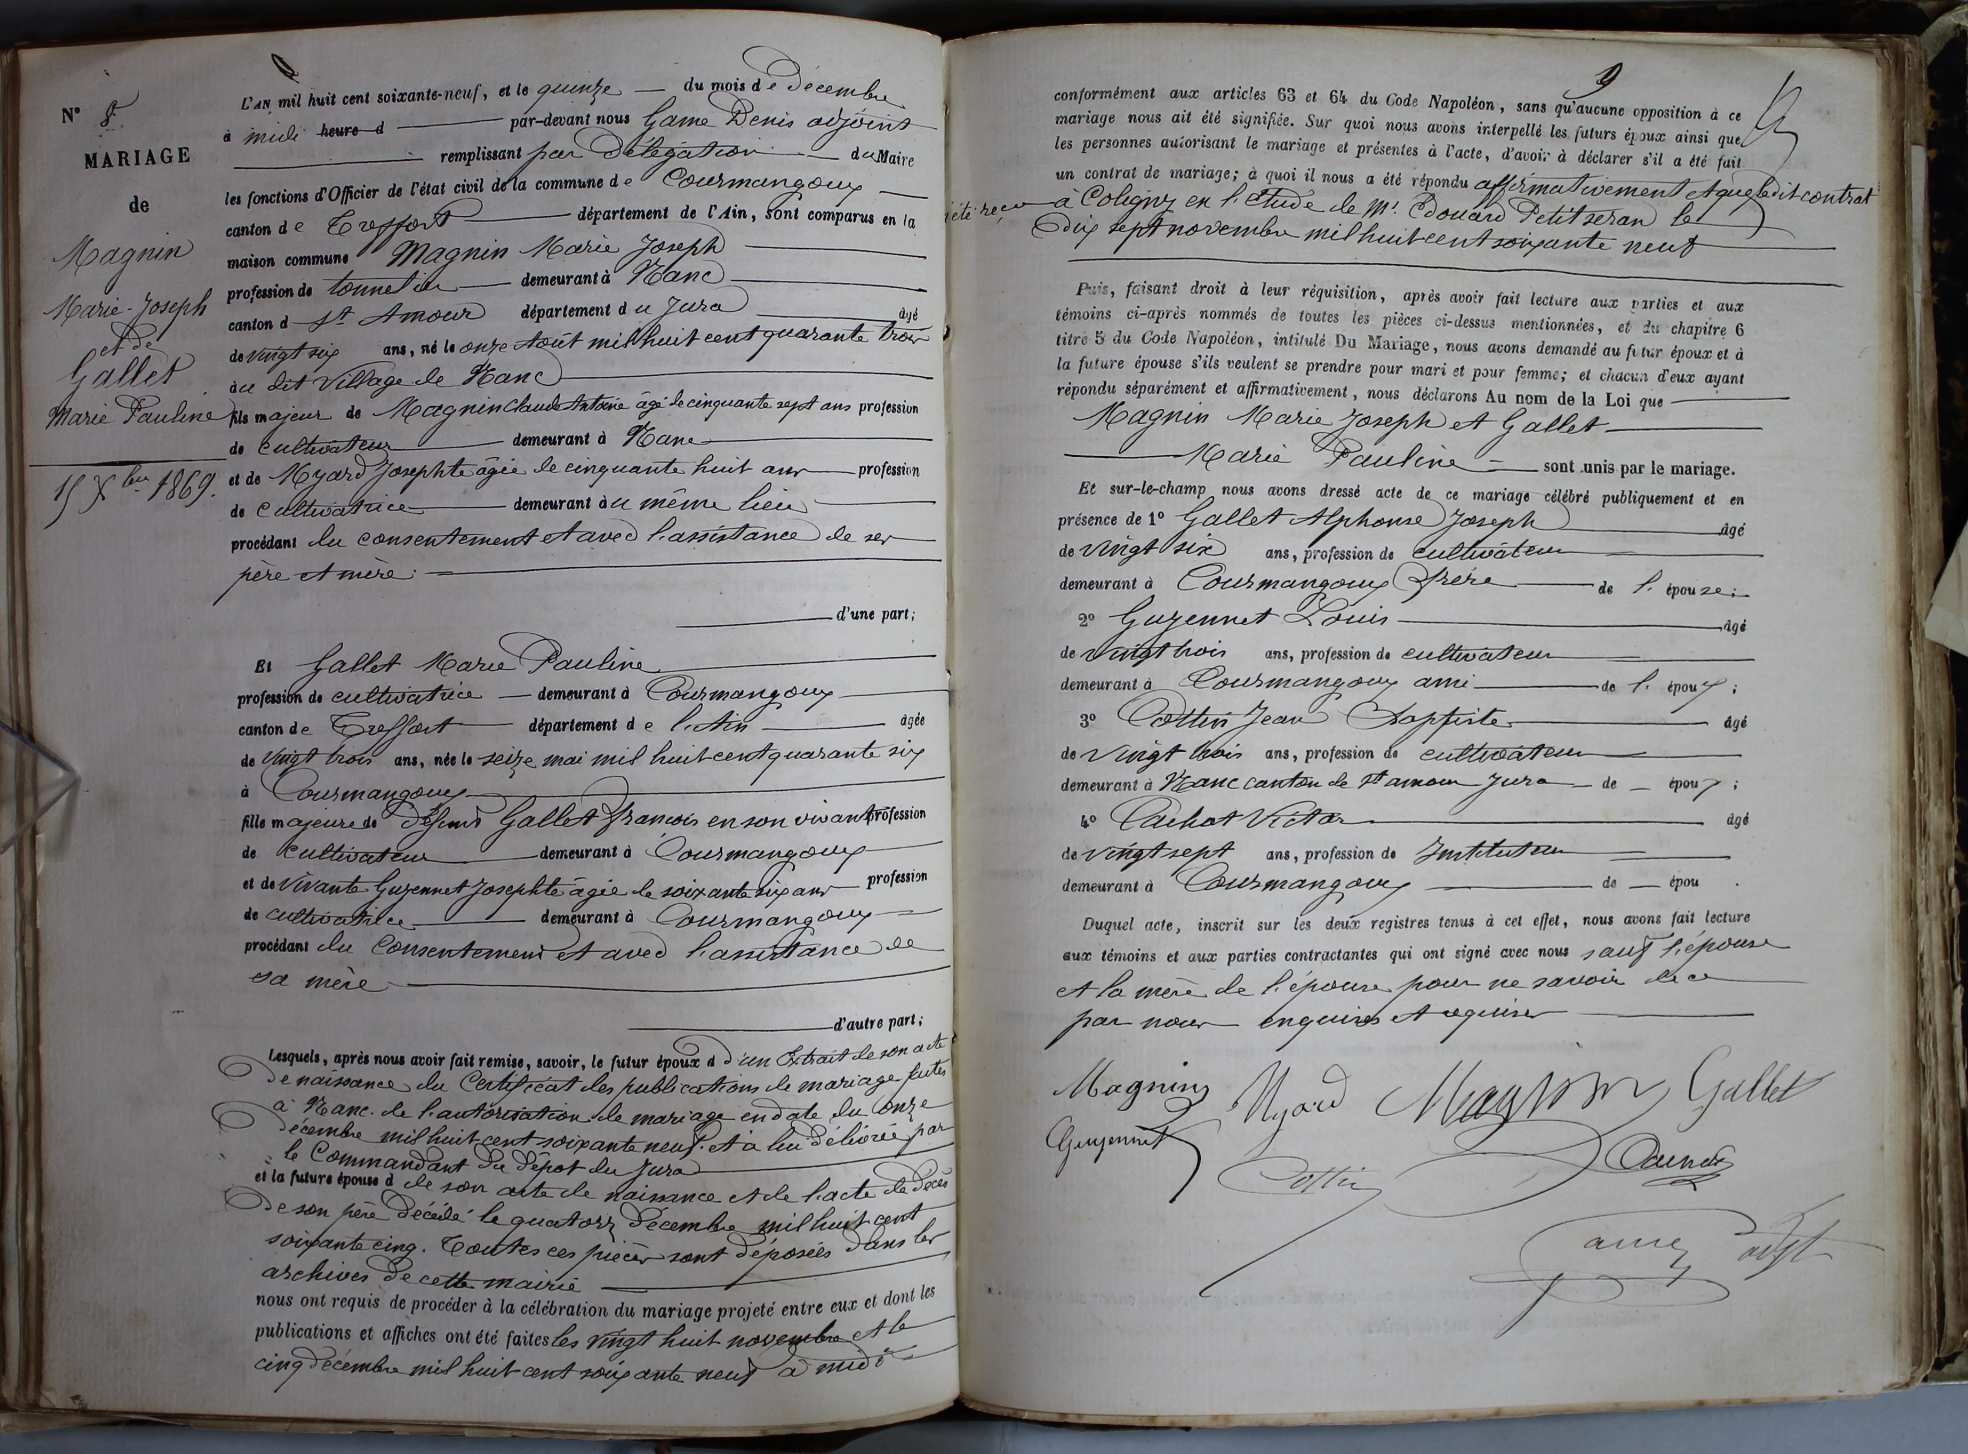 N° 8
MARIAGE
de
Magnin
Marie-Joseph
et de
Gallet
Marie Pauline
15 Xbre 1869.
L'AN mil huit cent soixante-neuf, et le quinze du mois de Décembre
à midi heure d par-devant nous Game Denis adjoint
remplissant par Délégation du Maire
les fonctions d'Officier de l'état civil de la commune de Courmangoux
canton de Treffort département de l'Ain, sont comparus en la
maison commune Magnin Marie Joseph
profession de tonnelier demeurant à Nanc
canton d St Amour département du Jura âgé
de vingt six ans, né le onze août mil huit cent quarante trois
au dit village de Nanc
fils majeur de Magnin Claude Antoine âgé de cinquante sept ans profession
de cultivateur demeurant à Nanc
et de Myard Josephte âgée de cinquante huit ans profession
de cultivatrice demeurant au même lieu
procédant du consentement et avec l'assistance de ses
père et mère.
d'une part;
Et Gallet Marie Pauline
profession de cultivatrice demeurant à Courmangoux
canton de Treffort département de l'Ain âgée
de vingt trois ans, née le seize mai mil huit cent quarante six
à Courmangoux
fille majeure de défunt Gallet François en son vivant profession
de cultivateur demeurant à Courmangoux
et de vivante Guyennet Josephte âgée de soixante six ans profession
de cultivatrice demeurant à Courmangoux
procédant du consentement et avec l'assistance de
sa mère
d'autre part;
Lesquels, après nous avoir fait remise, savoir, le futur époux d D'un Extrait de son acte
de naissance du Certificat des publications de mariage faites
à Nanc. de l'autorisation de mariage en date du onze
décembre mil huit cent soixante neuf. et à lui délivrée par
le Commandant du dépot du Jura
et la future épouse d de son acte de naissance et de l'acte de Décès
de son père décédé le quatorze décembre mil huit cent
soixante cinq. Toutes ces pièces sont déposées dans les
archives de cette mairie
nous ont requis de procéder à la célébration du mariage projeté entre eux et dont les
publications et affiches ont été faites les vingt huit novembre et le
cinq décembre mil huit cent soixante neuf à midi
9
conformément aux articles 63 et 64 du Code Napoléon, sans qu'aucune opposition à ce
mariage nous ait été signifiée. Sur quoi nous avons interpellé les futurs époux ainsi que
les personnes autorisant le mariage et présentes à l'acte, d'avoir à déclarer s'il a été fait
un contrat de mariage; à quoi il nous a été répondu affirmativement et que ledit contrat
été reçu à Coligny en l'étude de Me. Edouard Petitseran le
Dix sept novembre mil huit cent soixante neuf
Puis, faisant droit à leur réquisition, après avoir fait lecture aux parties et aux
témoins ci-après nommés de toutes les pièces ci-dessus mentionnées, et du chapitre 6
titre 5 du Code Napoléon, intitulé Du Mariage, nous avons demandé au futur époux et à
la future épouse s'ils veulent se prendre pour mari et pour femme; et chacun d'eux ayant
répondu séparément et affirmativement, nous déclarons Au nom de la Loi que
Magnin Marie Joseph et Gallet
Marie Pauline sont unis par le mariage.
Et sur-le-champ nous avons dressé acte de ce mariage célébré publiquement et en
présence de 1° Gallet Alphonse Joseph âgé
de vingt six ans, profession de cultivateur
demeurant à Courmangoux frère de l'épouse;
2° Guyennet Louis âgé
de vingt trois ans, profession de cultivateur
demeurant à Courmangoux ami de l'époux;
3° Cottin Jean Baptiste âgé
de vingt trois ans, profession de cultivateur
demeurant à Nanc canton de St amour Jura de époux;
4° Cachot Victor âgé
de vingt sept ans, profession de Instituteur
demeurant à Courmangoux de épou .
Duquel acte, inscrit sur les deux registres tenus à cet effet, nous avons fait lecture
aux témoins et aux parties contractantes qui ont signé avec nous sauf l'épouse
et la mère de l'épouse pour ne savoir de ce
par nous enquises et requises
Magnin Myard Magnin Gallet
Guyennet Cottin Cachot
Game adjt